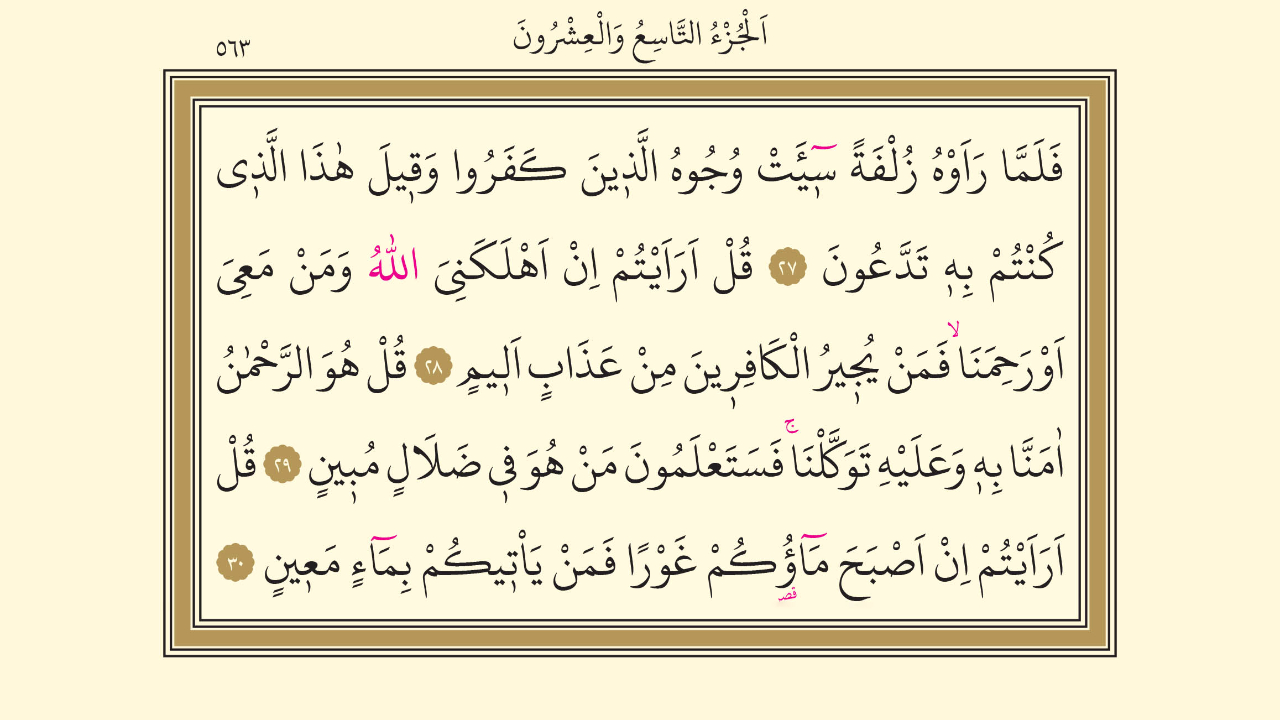 اَلْجُزْءُ التَّاسِعُ وَالْعِشْرُونَ
٥٦٣
فَلَمَّا رَاَوْهُ زُلْفَةً سٖٓيـَٔتْ وُجُوهُ الَّذٖينَ كَفَرُوا وَقٖيلَ هٰذَا الَّذٖى
كُنْتُمْ بِهٖ تَدَّعُونَ ٢٧ قُلْ اَرَاَيْتُمْ اِنْ اَهْلَكَنِىَ اللّٰهُ وَمَنْ مَعِىَ
اَوْرَحِمَنَاۙ فَمَنْ يُجٖيرُ الْكَافِرٖينَ مِنْ عَذَابٍ اَلٖيمٍ ٢٨ قُلْ هُوَ الرَّحْمٰنُ
اٰمَنَّا بِهٖ وَعَلَيْهِ تَوَكَّلْنَاۚ فَسَتَعْلَمُونَ مَنْ هُوَ فٖى ضَلَالٍ مُبٖينٍ ٢٩ قُلْ
اَرَاَيْتُمْ اِنْ اَصْبَحَ مَٓاؤُ۬كُمْ غَوْرًا فَمَنْ يَاْتٖيكُمْ بِمَٓاءٍ مَعٖينٍ ٣٠
قصر